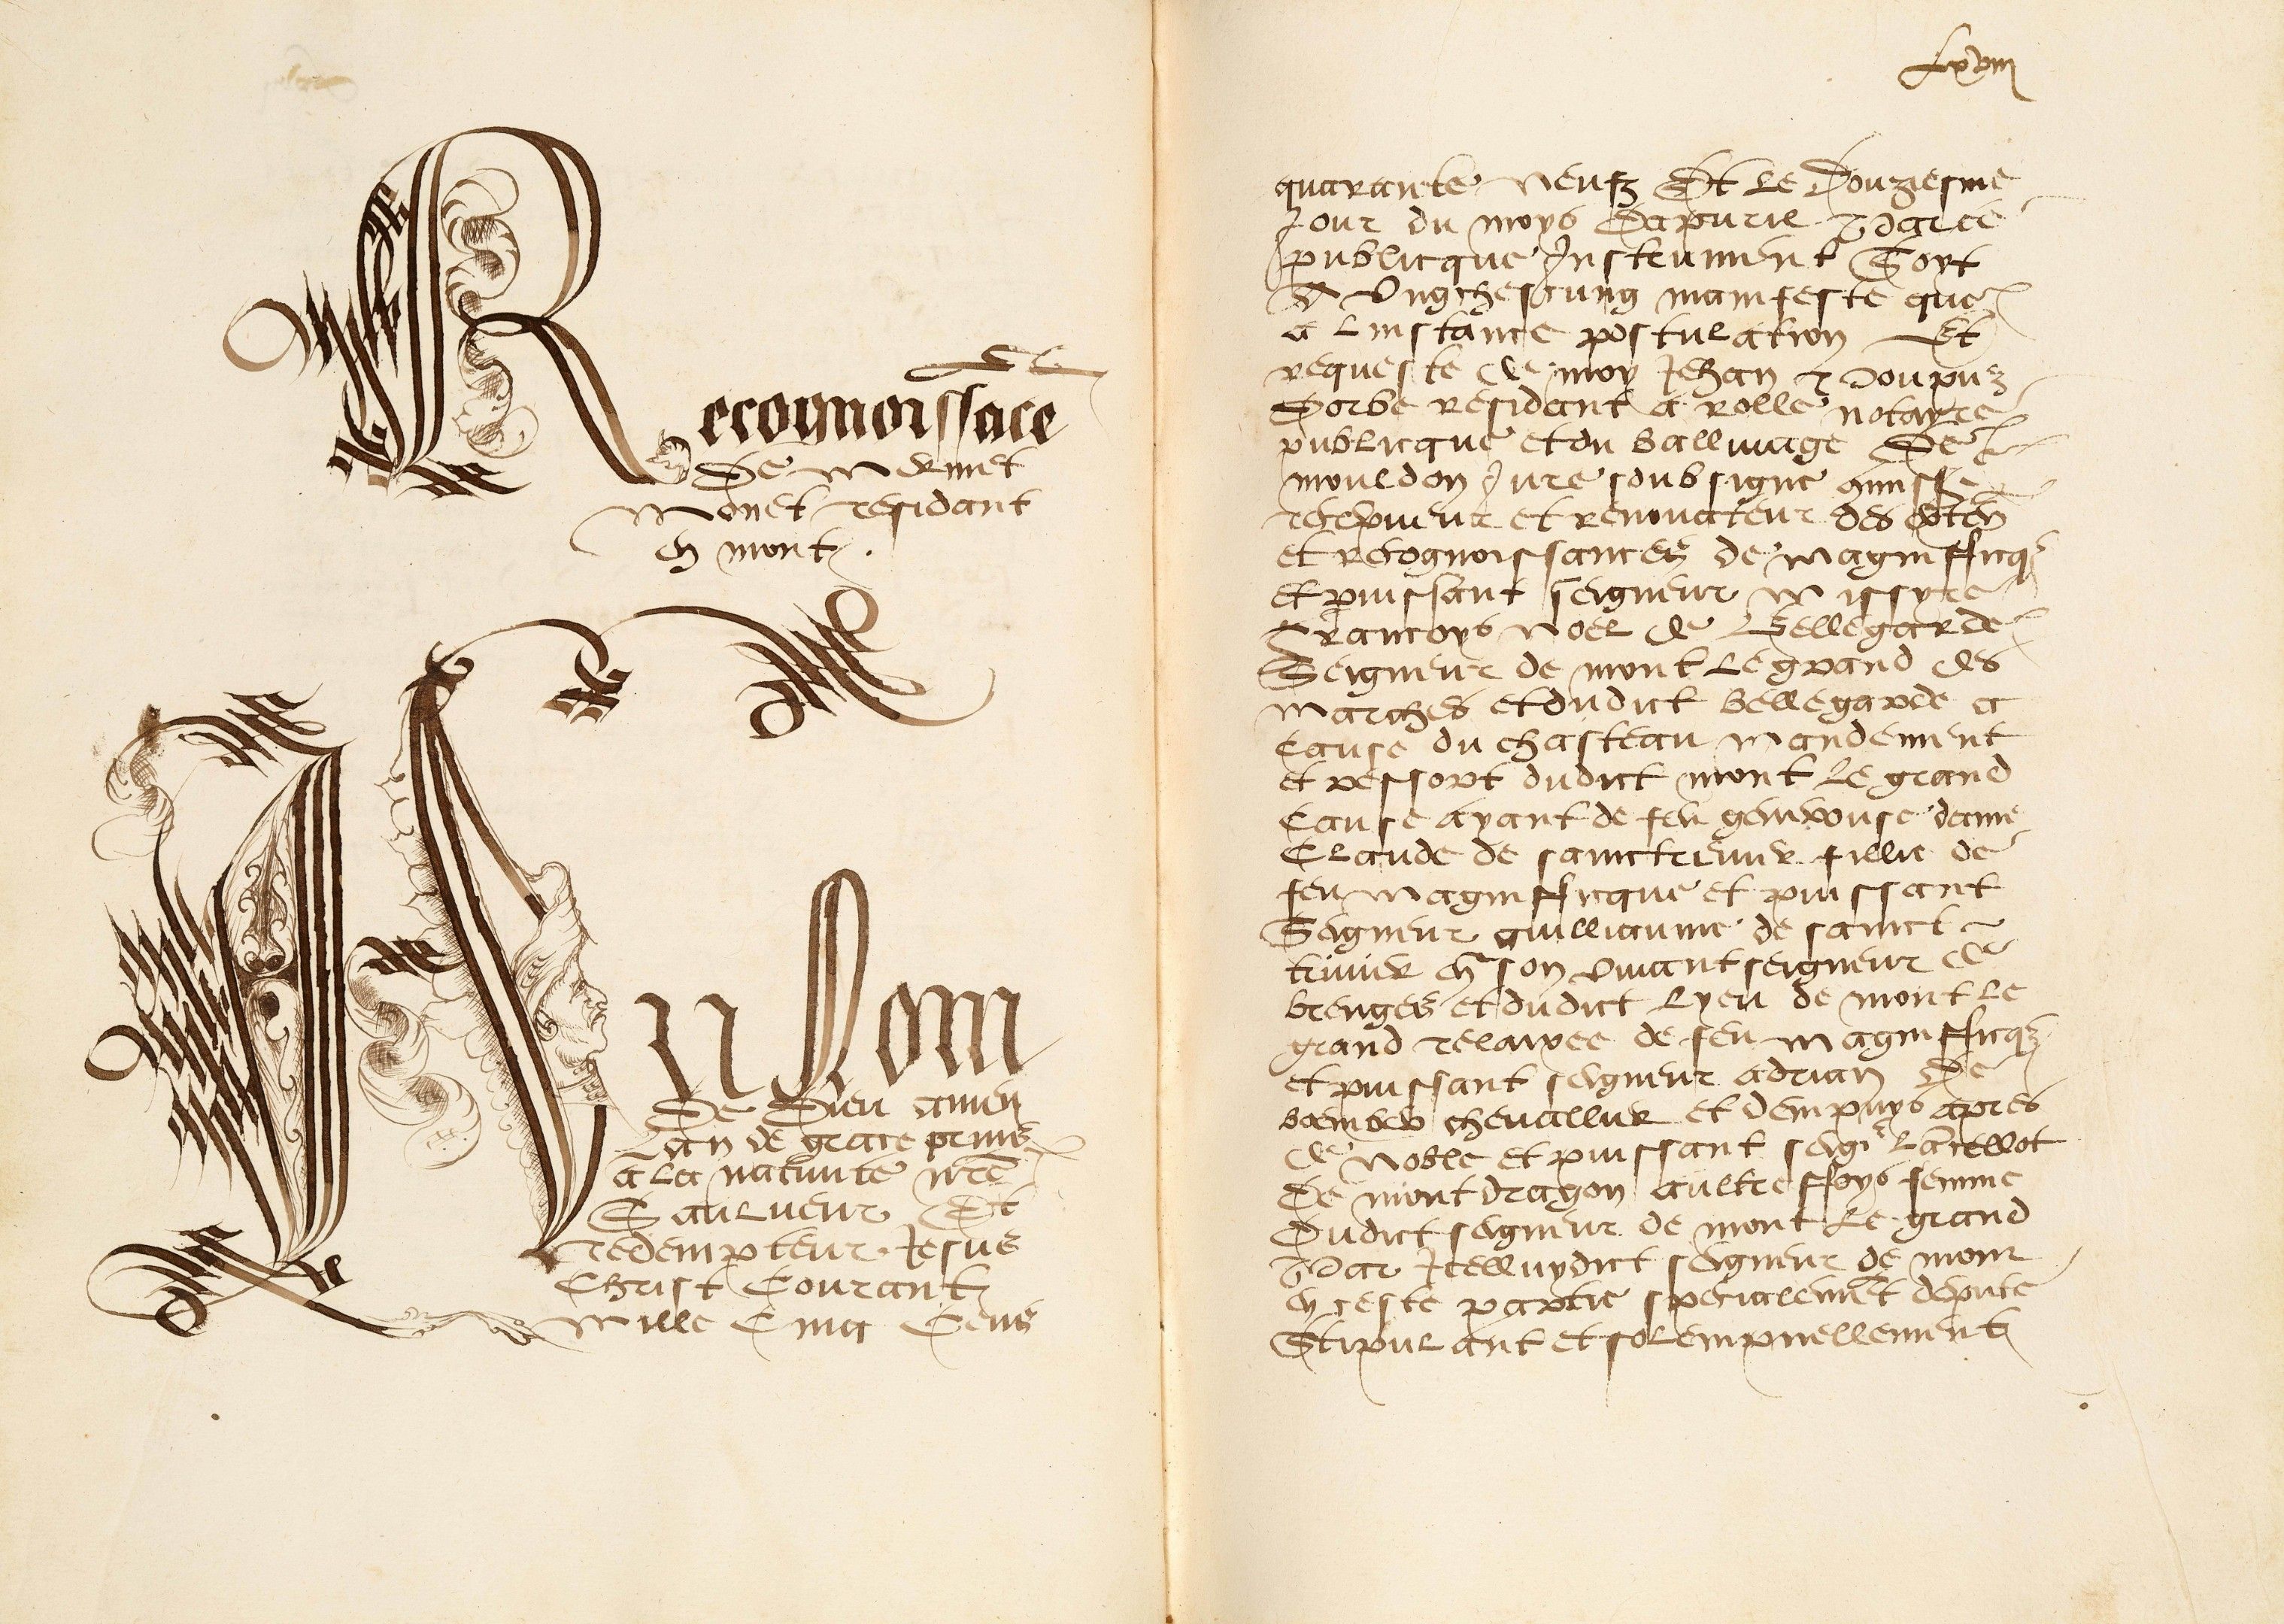 Recognoissāce
De Mermet
Monet residant
en mont.
Au Nom
De Dieu amen
Lan de grace prins
a la natiuite nr̄e
Saulueur Et
redempteur Jesus
Christ Courant
Mille Cinq Cens
lxviii
quarante Neufz Et Le Douziesme
Jour du moys Dapuril Par ce
publicque Jnstrument Soyt
A Ungchescung manifeste que
a Linstance postulation Et
requeste de moy Jehan
Sorbe residant a rolle notayre
publicque et du balliuage De
mouldon Jure soubsigne
et renouateur des
et recognoissances de magnifficq
et puissant seigneur Missyre
Francoys Noel de Bellegarde
Seigneur de mont Le grand des
Marches et dudict bellegarde a
Cause du chasteau Mandement
et ressort dudict mont Le grand
Cause ayant de feu genereuse dame
Claude de sainct trivier fillie de
feu Magnifficque et puissant
Seigneur guilliaume de sainct
trivier en son viuant seigneur de
brenges et dudict Lyeu de mont Le
grand relaixee de feu Magnifficq
et puissant seigneur adrian De
cheuallier et dempuys apres
de Noble et puissant seigr Lācellot
De montdragon aultreffoys femme
Dudict seigneur de mont Le grand
Par Jcelluydict seigneur de mont
en ceste partie specialemēt depute
Stipulant et solempnellement